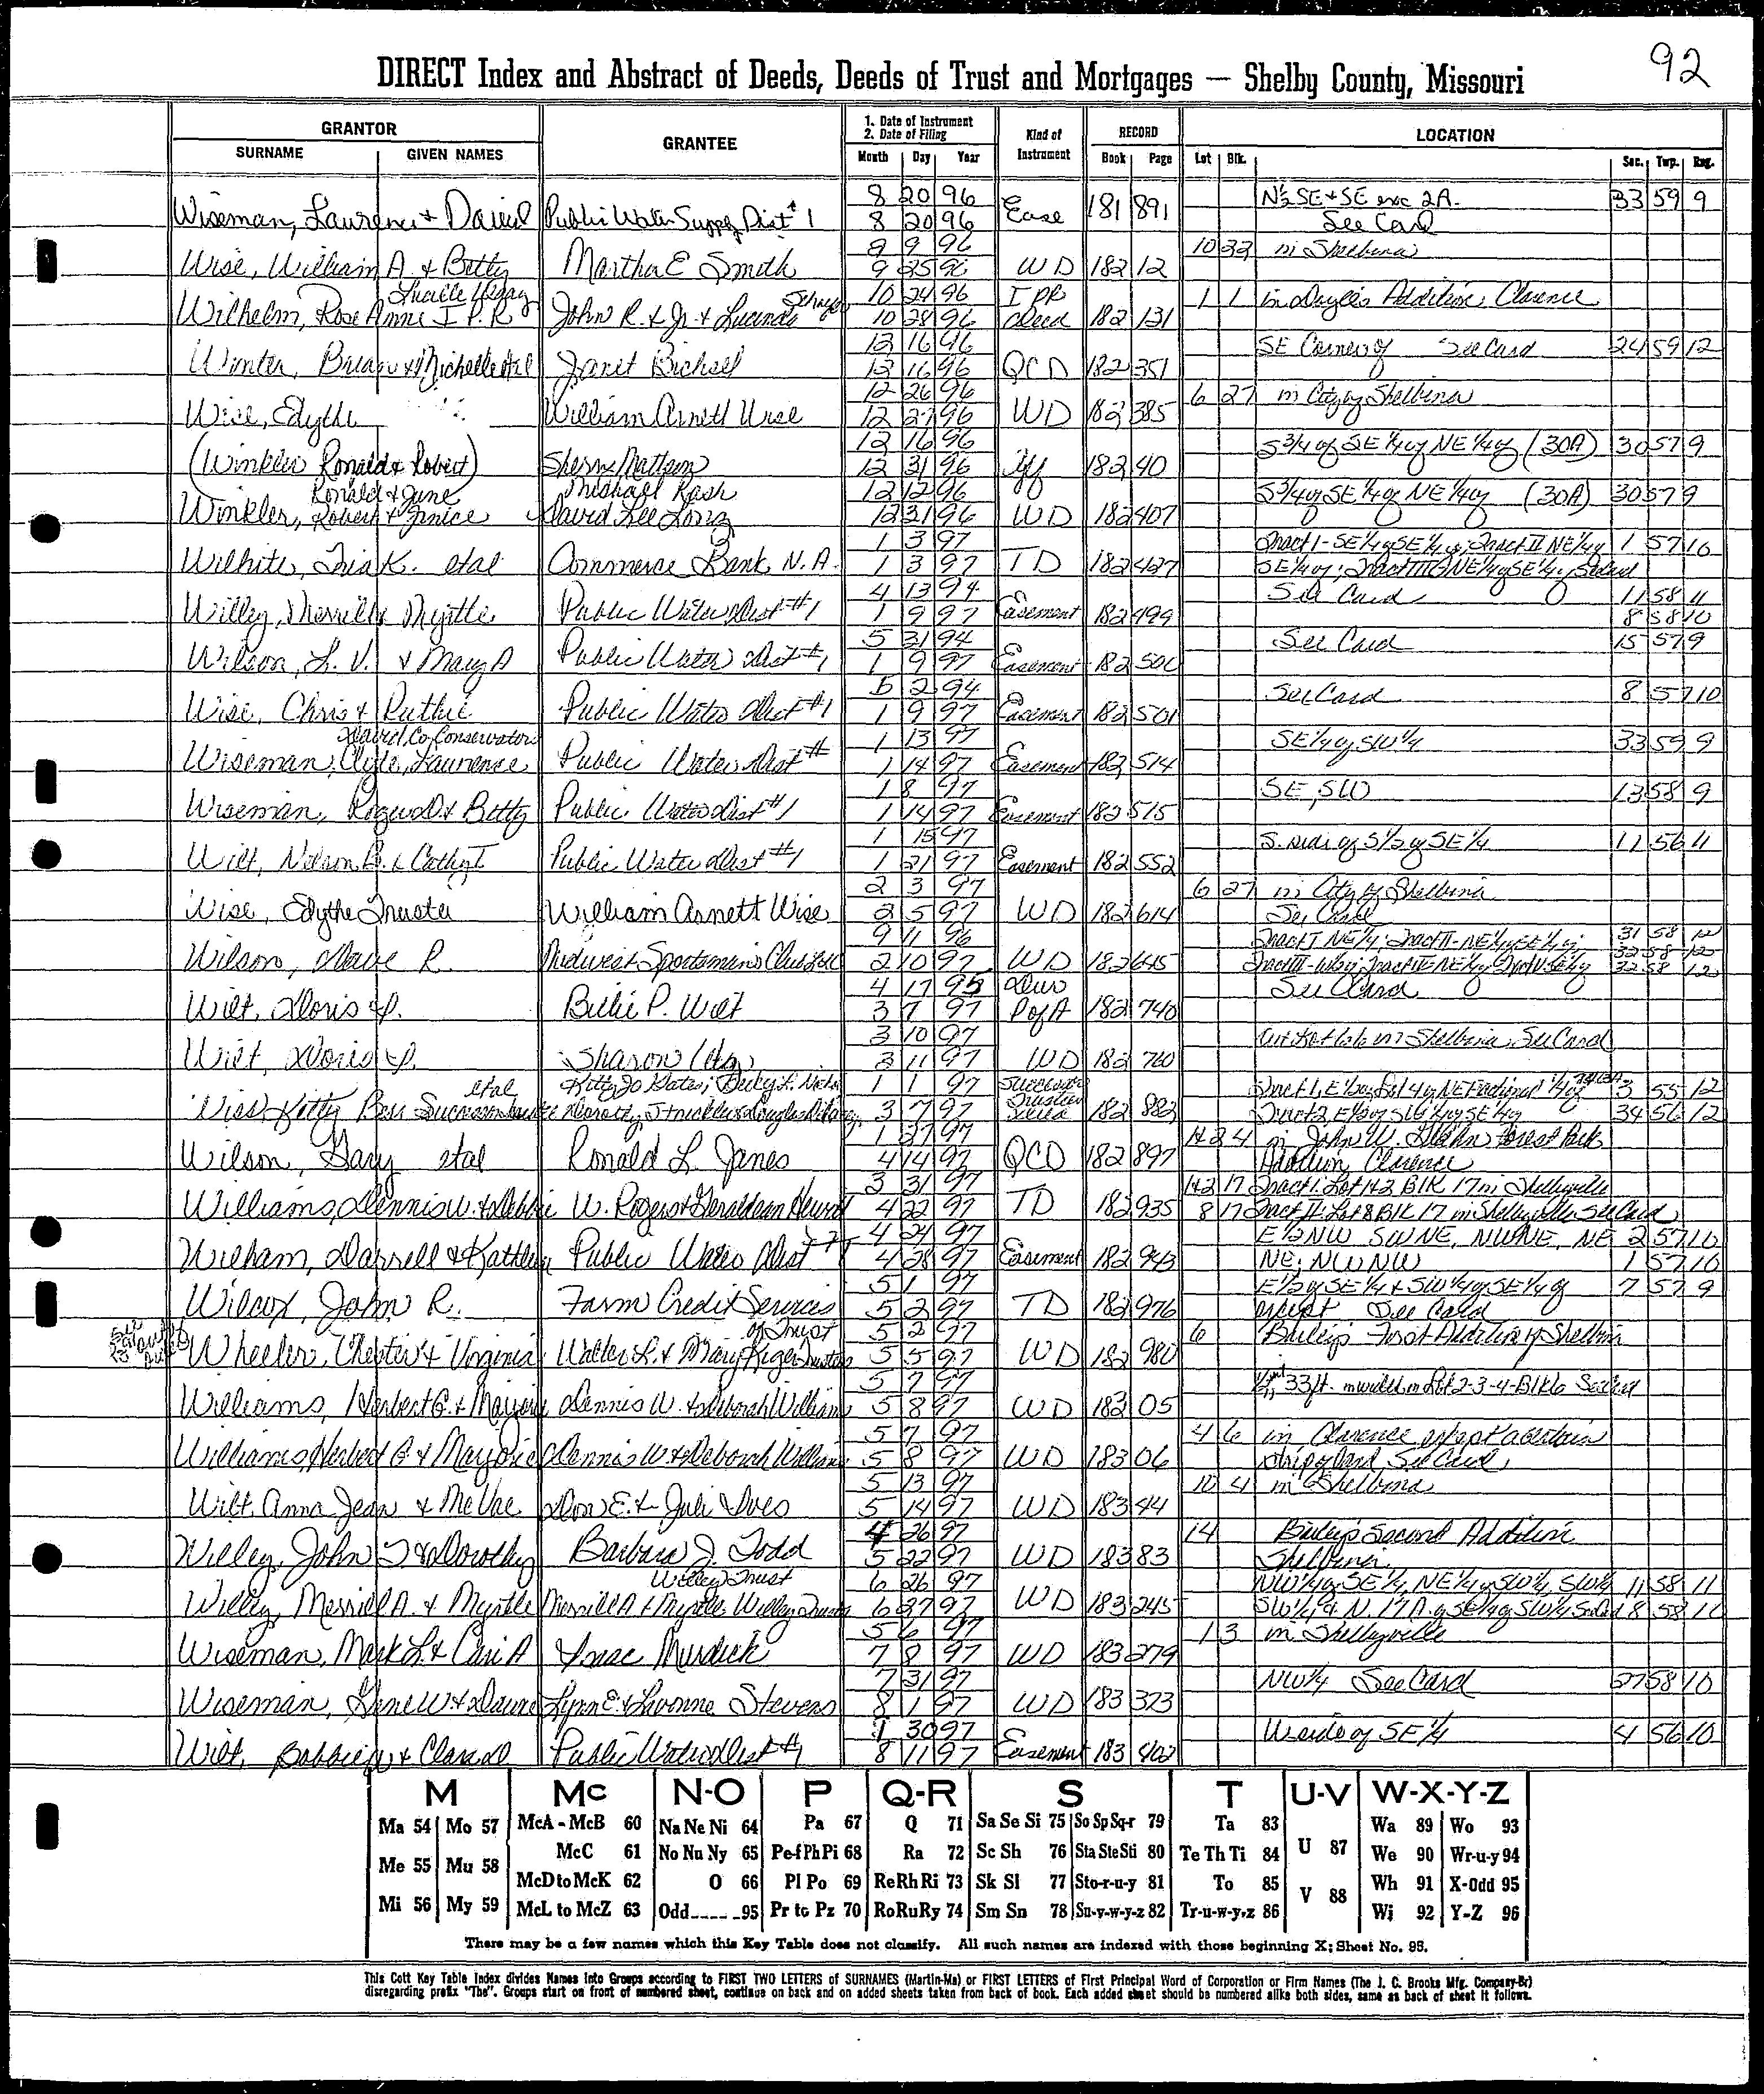 92
DIRECT Index and Abstract of Deeds, Deeds of Trust and Mortgages — Shelby County, Missouri
GRANTOR GRANTEE 1. Date of Instrument 2. Date of Filing Kind of Instrument RECORD LOCATION
SURNAME GIVEN NAMES Month Day Year Book Page Lot Blk. Sec. Twp. Rng.
8 20 96 N½ SE & SE exc 2A. 33 59 9
Wiseman, Laurence & David Public Water Supply Dist #1 8 20 96 Ease 181 891 See Card
9 9 96 10 33 in Shelbina
Wise, William A. & Betty Martha E Smith 9 25 96 WD 182 12
10 24 96 I PR 1 1 in Clarence
Wilhelm, Rose Anne I P.R John R. & Jr. & Lucinda 10 28 96 Deed 182 131
12 16 96 SE Corner of See Card 24 59 12
Winter, Brian & Michelle etal Janet Bichsel 12 16 96 QCD 182 351
12 26 96 6 27 in City of Shelbina
Wise, Edythe William Arnett Wise 12 27 96 WD 182 385
12 16 96 S 3/4 of SE 1/4 of NE 1/4 of (30A) 30 57 9
(Winkler Ronald & Robert) 12 31 96 182 40
Ronald & June Michael Rash 12 12 96 S 3/4 of SE 1/4 of NE 1/4 of (30A) 30 57 9
Winkler, Robert & Janice David Lee Long 12 31 96 WD 182 407
1 3 97 Tract I - SE 1/4 of SE 1/4 of; Tract II NE 1/4 of 1 57 10
Wilhite, K. etal Commerce Bank N.A. 1 3 97 TD 182 427 SE 1/4 of; Tract III NE 1/4 of SE 1/4 of See Card
4 13 94 See Card 11 58 11
Willey, Merrill & Myrtle Public Water Dist #1 1 9 97 Easement 182 499 8 58 10
5 31 94 See Card 15 57 9
Wilson, L. V. & Mary A Public Water Dist #1 1 9 97 Easement 182 500
5 2 94 See Card 8 57 10
Wise, Chris & Ruthie Public Water Dist #1 1 9 97 Easement 182 501
David, Co-Conservators 1 13 97 SE 1/4 of SW 1/4 33 59 9
Wiseman, Clyde, Laurence Public Water Dist # 1 14 97 Easement 182 514
1 8 97 SE, SW 13 58 9
Wiseman, & Betty Public Water Dist #1 1 14 97 Easement 182 515
1 15 97 S. side of S 1/2 of SE 1/4 11 56 11
Wilt, Nelson & Cathy Public Water Dist #1 1 21 97 Easement 182 552
2 3 97 6 27 in City of Shelbina
Wise, Edythe Trustee William Arnett Wise 2 5 97 WD 182 614 See Card
9 11 96 Tract I NE 1/4; Tract II - NE 1/4 of SE 1/4 of; 31 58 12
Wilson, R. Midwest Sportsman's Club 2 10 97 WD 182 645 32 58 12
4 17 95 Dur See Card
Wilt, Doris Billie P. Wilt 3 7 97 P of A 182 740
3 10 97 in Shelbina See Card
Wilt, Doris Sharon 3 11 97 WD 182 760
etal 1 1 97 Successor Trustee 3 55 12
Kitty 3 7 97 Deed 182 882 34 56 12
1 27 97 1&2 4 in John W. Forest Park
Wilson, Gary etal Ronald L. Janes 4 14 97 QCD 182 897 Addition, Clarence
3 31 97 1&2 17 Tract I: Lot 1&2 Blk 17 in Shelbyville
Williams, Dennis W. & Debbie W. Rogers & Geraldean 4 22 97 TD 182 935 8 17 Tract II: Lot 8 Blk 17 in Shelbyville See Card
4 24 97 E½ NW SWNE, NWNE, NE 2 57 10
Wilham, Darrell & Kathleen Public Water Dist #1 4 28 97 Easement 182 943 NE; NWNW 1 57 10
5 1 97 E 1/2 of SE 1/4 & SW 1/4 of SE 1/4 of 7 57 9
Wilcox, John R. Farm Credit Services 5 2 97 TD 182 976 except See Card
of Trust 5 2 97 6 Bailey's First Addition of Shelbina
Wheeler, Chester & Virginia Walter L. & Mary Kiger Trustees 5 5 97 WD 182 980
5 7 97 33 ft. Lot 2-3-4-Blk 6 See Card
Williams, Herbert G. & Marjorie Dennis W. & Deborah Williams 5 8 97 WD 183 05
5 7 97 4 6 in Clarence except a certain
Williams, Herbert G. & Marjorie Dennis W. & Deborah Williams 5 8 97 WD 183 06 strip of land See Card
5 13 97 10 4 in Shelbina
Wilt, Anna Jean & McVae Don E. & Juli 5 14 97 WD 183 44
4 26 97 14 Bailey's Second Addition
Willey, John & Dorothy Barbara J. Todd 5 22 97 WD 183 83 Shelbina
Willey Trust 6 26 97 NW 1/4 of SE 1/4, NE 1/4 of SW 1/4, SW 1/4 11 58 11
Willey, Merrill A. & Myrtle Merrill A & Myrtle Willey 6 27 97 WD 183 245 SW 1/4 N. 17 A. of SE 1/4 of SW 1/4
5 6 97 1 3 in Shelbyville
Wiseman, Mark L. & Cari A Isaac Murdick 7 8 97 WD 183 279
7 31 97 NW 1/4 See Card 27 58 10
Wiseman, Gene W. & Lynn E. & Stevens 8 1 97 WD 183 323
1 30 97 W side of SE 1/4 4 56 10
Wilt, & Clara Public Water Dist #1 8 11 97 Easement 183 402
M Mc N-O P Q-R S T U-V W-X-Y-Z
Ma 54 Mo 57 McA - McB 60 Na Ne Ni 64 Pa 67 Q 71 Sa Se Si 75 So Sp Sq-r 79 Ta 83 U 87 Wa 89 Wo 93
McC 61 No Nu Ny 65 Pe-f Ph Pi 68 Ra 72 Sc Sh 76 Sta Ste Sti 80 Te Th Ti 84 We 90 Wr-u-y 94
Me 55 Mu 58 McD to McK 62 O 66 Pl Po 69 Re Rh Ri 73 Sk Sl 77 Sto-r-u-y 81 To 85 V 88 Wh 91 X-Odd 95
Mi 56 My 59 McL to McZ 63 Odd____95 Pr to Pz 70 Ro Ru Ry 74 Sm Sn 78 Su-v-w-y-z 82 Tr-u-w-y-z 86 Wi 92 Y-Z 96
There may be a few names which this Key Table does not classify. All such names are indexed with those beginning X; Sheet No. 95.
This Cott Key Table Index divides Names into Groups according to FIRST TWO LETTERS of SURNAMES (Martin-Ma) or FIRST LETTERS of First Principal Word of Corporation or Firm Names (The J. C. Brooks Mfg. Company-Br)
disregarding prefix "The". Groups start on front of numbered sheet, continue on back and on added sheets taken from back of book. Each added sheet should be numbered alike both sides, same as back of sheet it follows.